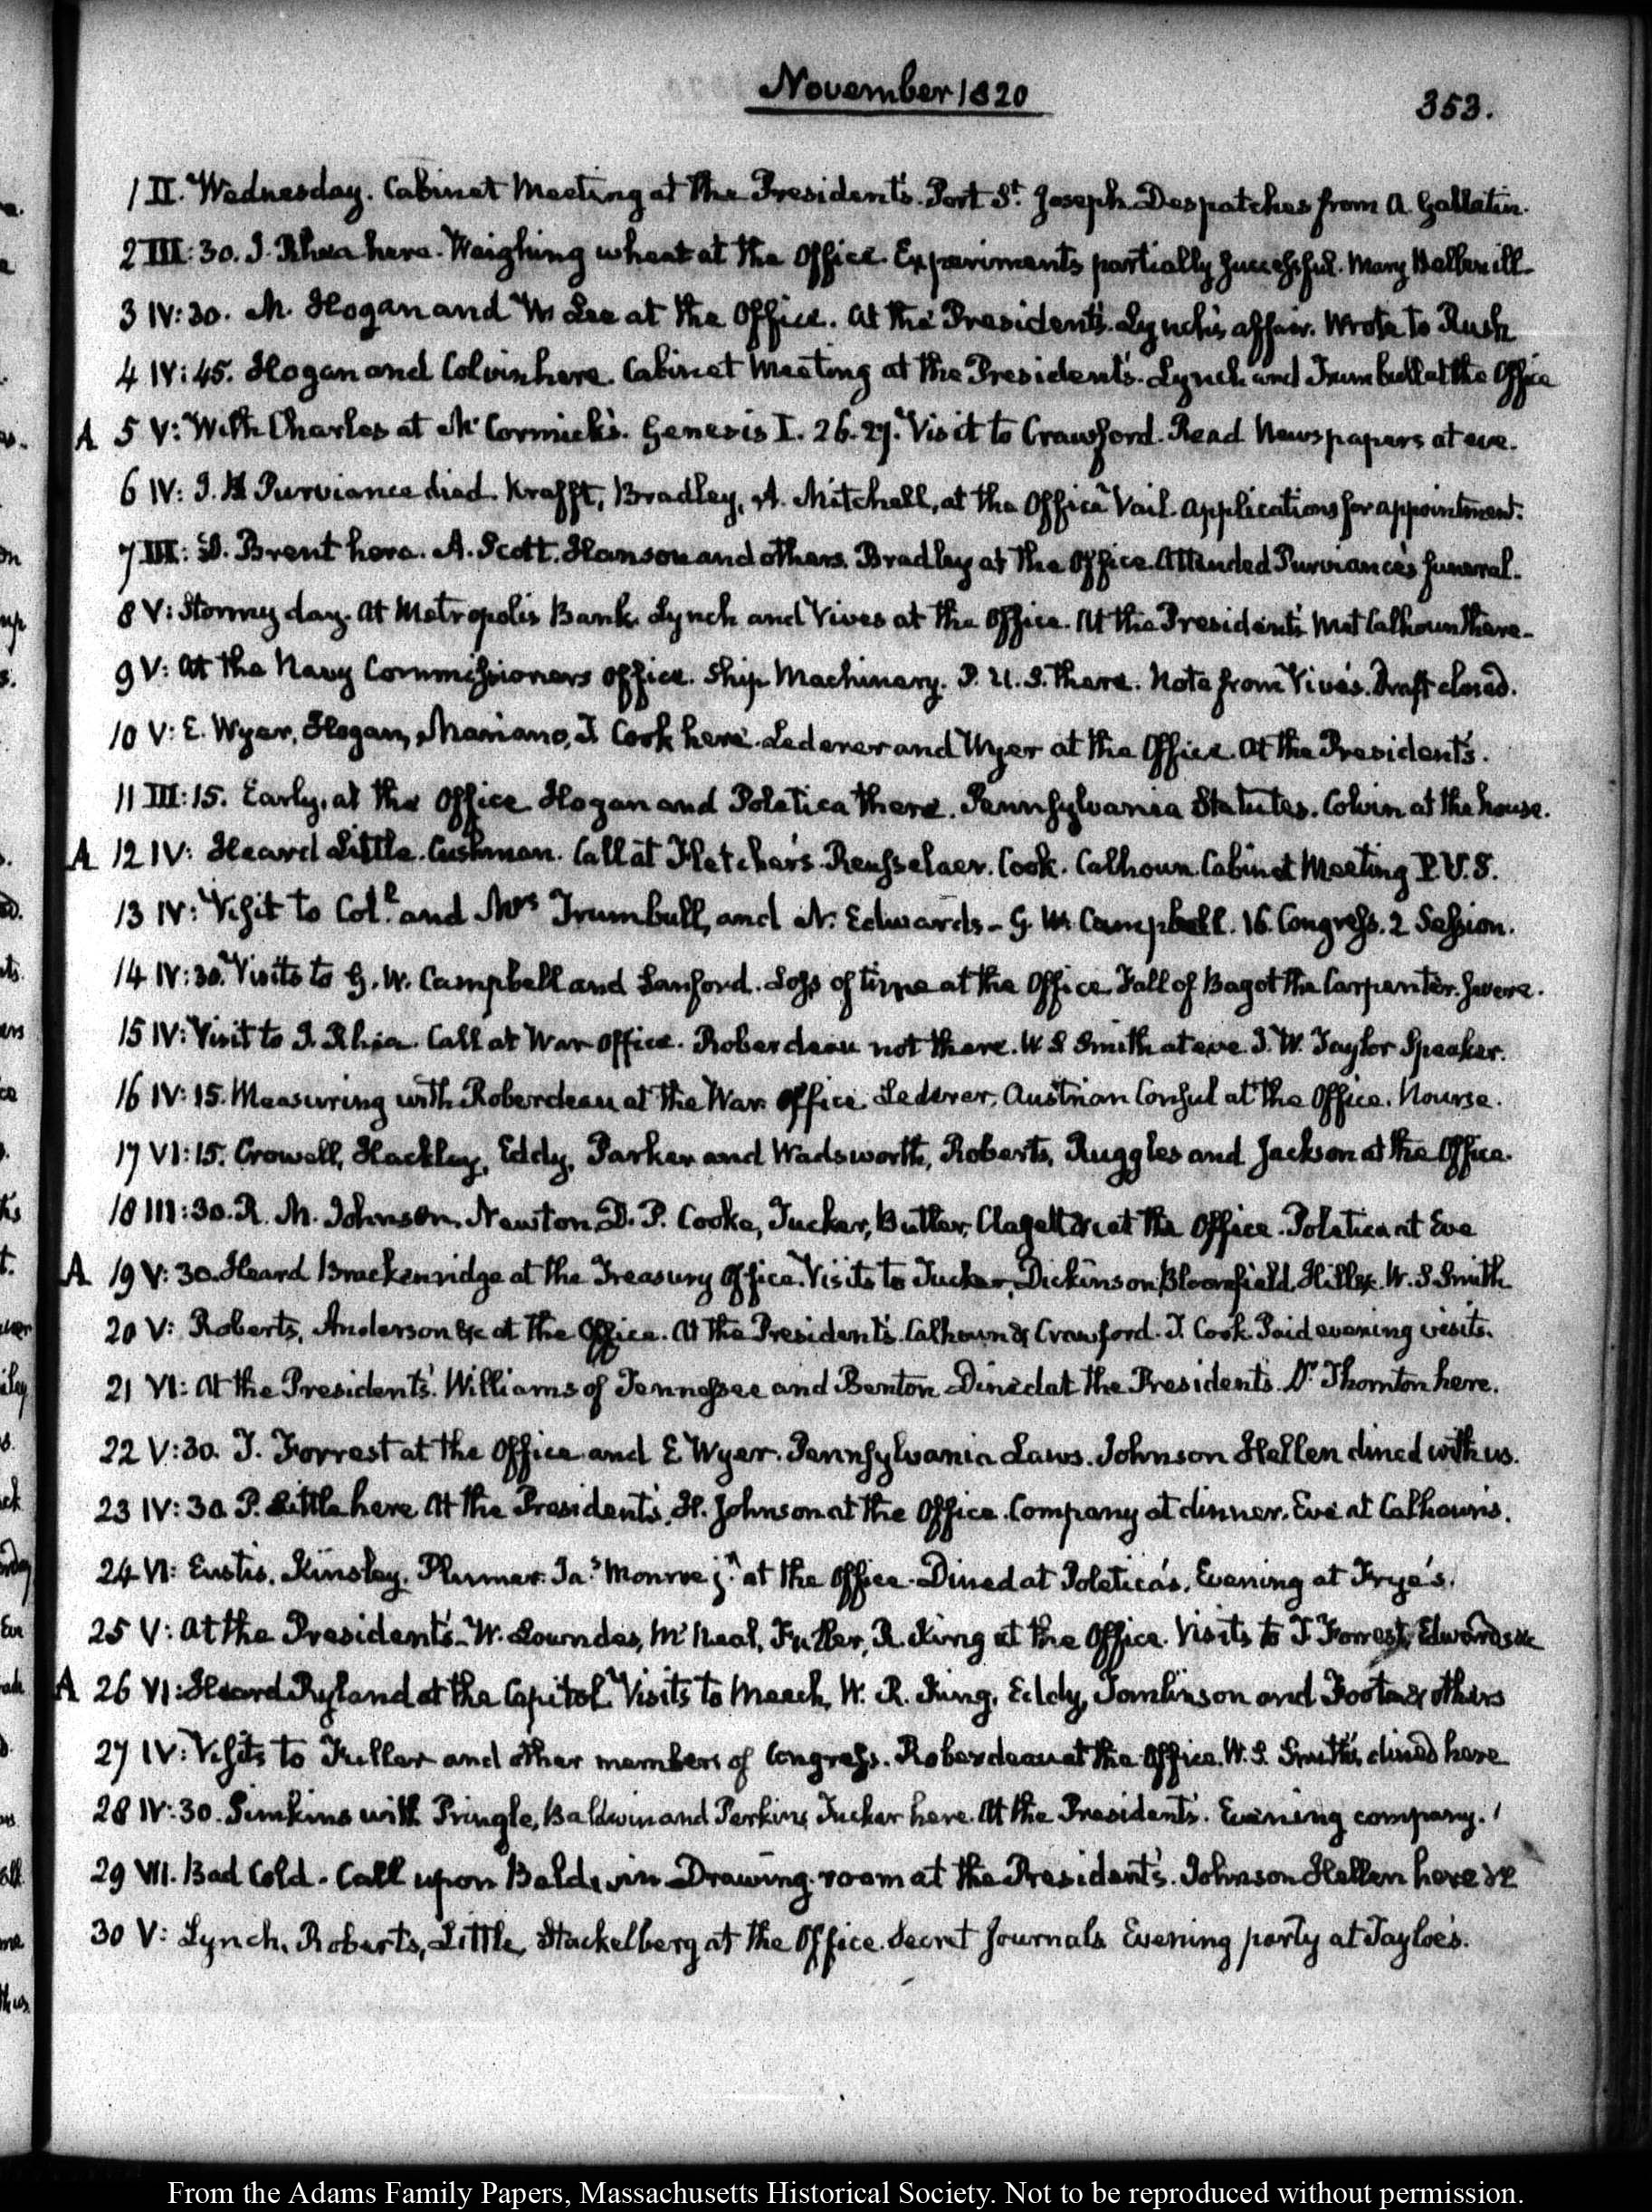 November 1820
353.
1 II. Wednesday. Cabinet Meeting at the President's. Port St. Joseph. Despatches from A. Gallatin.
2 III:30. J. Rhea here. Weighing wheat at the Office. Experiments partially successful. Mary Hellen ill.
3 IV:30. M. Hogan and W. Lee at the Office. At the President's. Lynch's affair. Wrote to Rush
4 IV:45. Hogan and Colvin here. Cabinet Meeting at the President's. Lynch and Trumbull at the Office
A 5 V: With Charles at McCormick's. Genesis I. 26. 27. Visit to Crawford. Read Newspapers at eve.
6 IV: J. H. Purviance died. Krafft, Bradley, A. Mitchell, at the Office Vail. Applications for appointment.
7 III: D. Brent here. A. Scott. Hanson and others. Bradley at the Office. Attended Purviance's funeral.
8 V: Stormy day. At Metropolis Bank. Lynch and Vives at the Office. At the President's. Met Calhoun there.
9 V: At the Navy Commissioners office. Ship Machinery. P. U. S. there. Note from Vives. Draft closed.
10 V: E. Wyer, Hogan, Mariano, J. Cook here. Lederer and Wyer at the Office. At the President's.
11 III:15. Early, at the Office Hogan and Poletica there. Pennsylvania Statutes. Colvin at the house.
A 12 IV: Heard Little. Cushman. Call at Fletcher's. Rensselaer. Cook. Calhoun. Cabinet Meeting P. U. S.
13 IV: Visit to Coll. and Mrs Trumbull, and N. Edwards - G. W. Campbell. 16. Congress. 2 Session.
14 IV:30. Visits to G. W. Campbell and Sanford. Loss of time at the Office. Fall of Bagot the Carpenter. Severe.
15 IV: Visit to J. Rhea. Call at War office. Roberdeau not there. W. S. Smith at eve. J. W. Taylor Speaker.
16 IV:15. Measuring with Roberdeau at the War Office. Lederer, Austrian Consul at the Office. Nourse.
17 VI:15. Crowell, Hackley, Eddy, Parker and Wadsworth, Roberts, Ruggles and Jackson at the Office.
18 III:30. R. M. Johnson, Newton, D. P. Cooke, Tucker, Butler, Clagett &c at the Office. Poletica at Eve
A 19 V:30. Heard Brackenridge at the Treasury Office. Visits to Tucker, Dickinson, Bloomfield, Hill &c. W. S. Smith
20 V: Roberts, Anderson &c at the Office. At the President's. Calhoun & Crawford. J. Cook. Paid evening visits.
21 VI: At the President's. Williams of Tennessee and Benton. Dined at the President's. Dr. Thornton here.
22 V:30. J. Forrest at the Office and E Wyer. Pennsylvania Laws. Johnson Hellen dined with us.
23 IV:30. P. Little here. At the President's. H. Johnson at the Office. Company at dinner. Eve at Calhoun's.
24 VI: Eustis, Kinsley, Plumer. Jas. Monroe jr. at the Office. Dined at Poletica's. Evening at Frye's.
25 V: At the President's. W. Lowndes, McNeal, Fuller, R. King at the Office. Visits to J Forrest, Edwards &c
A 26 VI: Heard Ryland at the Capitol. Visits to Meech, W. R. King, Eddy, Tomlinson and Foot & others
27 IV: Visits to Fuller and other members of Congress. Roberdeau at the Office. W. S. Smith's dined here
28 IV:30. Simkins with Pringle, Baldwin and Perkins, Tucker here. At the President's. Evening company.
29 VII. Bad Cold. Call upon Baldwin. Drawing room at the President's. Johnson Hellen here &c
30 V: Lynch, Roberts, Little, Stackelberg at the Office. Secret Journals. Evening party at Tayloe's.
From the Adams Family Papers, Massachusetts Historical Society. Not to be reproduced without permission.